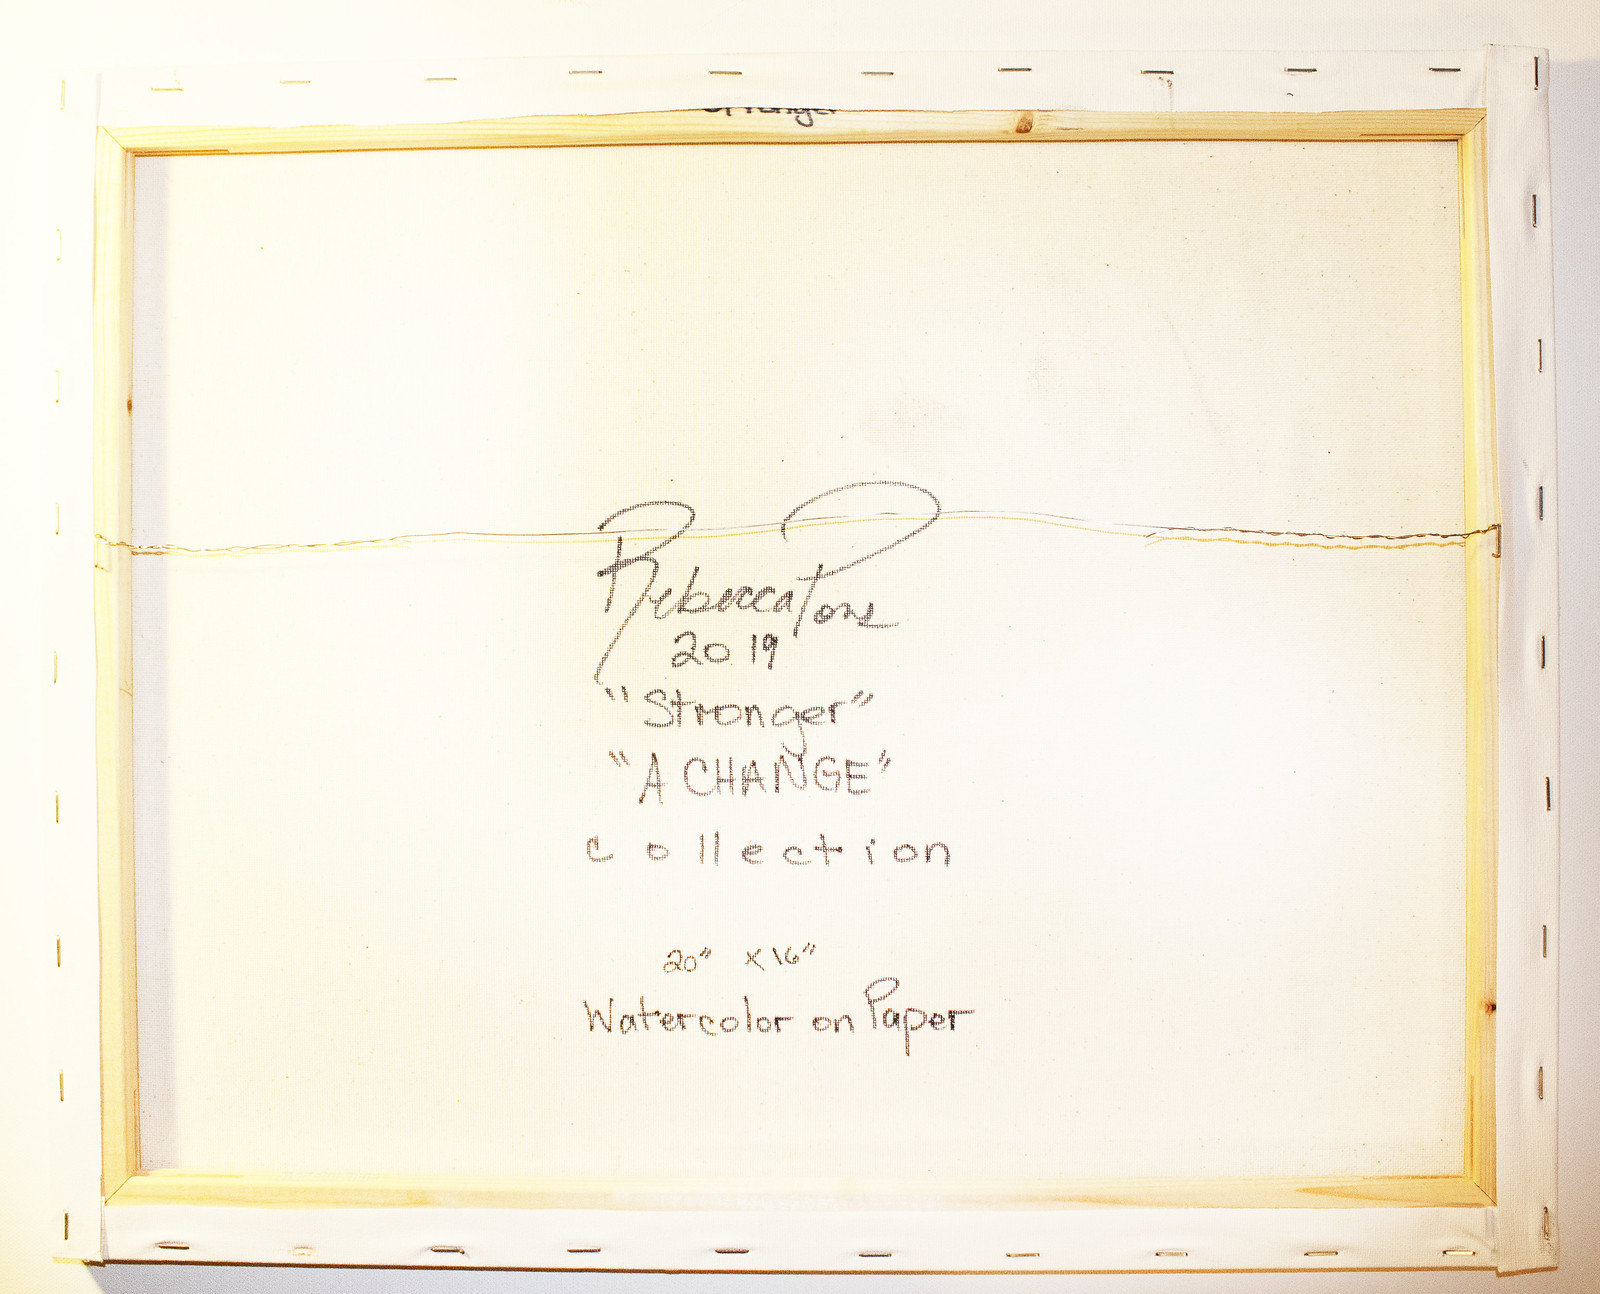 Stronger
Rebecca Pons
2019
"Stronger"
"A CHANGE"
collection
20" x 16"
Watercolor on Paper